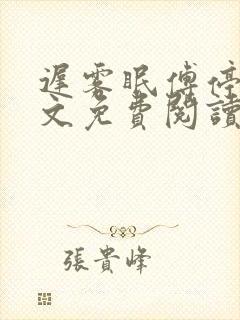 遲霧眠傅停
文免費閱讀
張貴峰